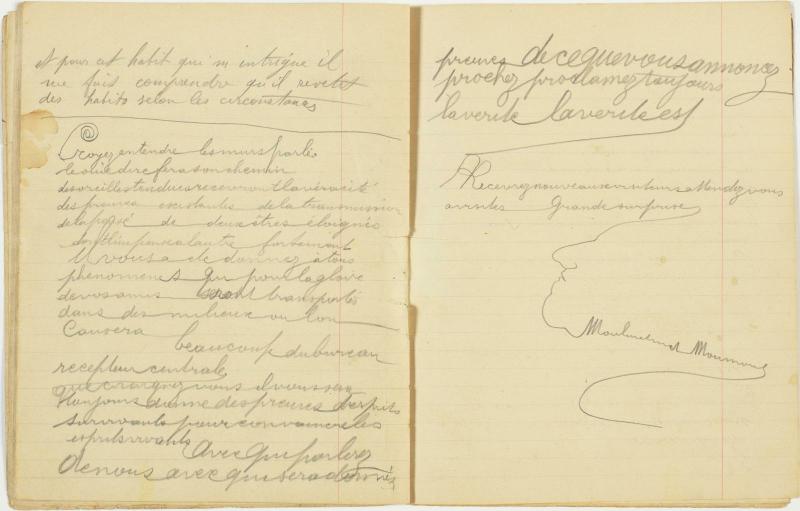 et pour cet habit qui m intrigue il
me fait comprendre qu'il revetet
des habits selon les circonstances
Croyez entendre les murs parlés
le ouie dire fera son chemin
des oreilles tendues recevront la véracité
des preuves existantes de la transmission
de la pensé de deux êtres éloignés
dont l'un pense a l'autre fortement
Il vous a ete donnez a tous
phénomenes qui pour la gloire
de vos amis seront transportés
dans des milieux ou l'on
Causera
beaucoup du bureau
recepteur centrale
que craignez vous il vous sera
toujours donne des preuves d'esprits
survivants pour convaincre les
esprits vivants
avec qui parlerez
de nous avec qui sera donnés
preuves de ce que vous annoncez
prochez proclamez toujours
la verite la verite est
Recevrez nouveaux visiteurs attendez vous
a visites Grande surprise